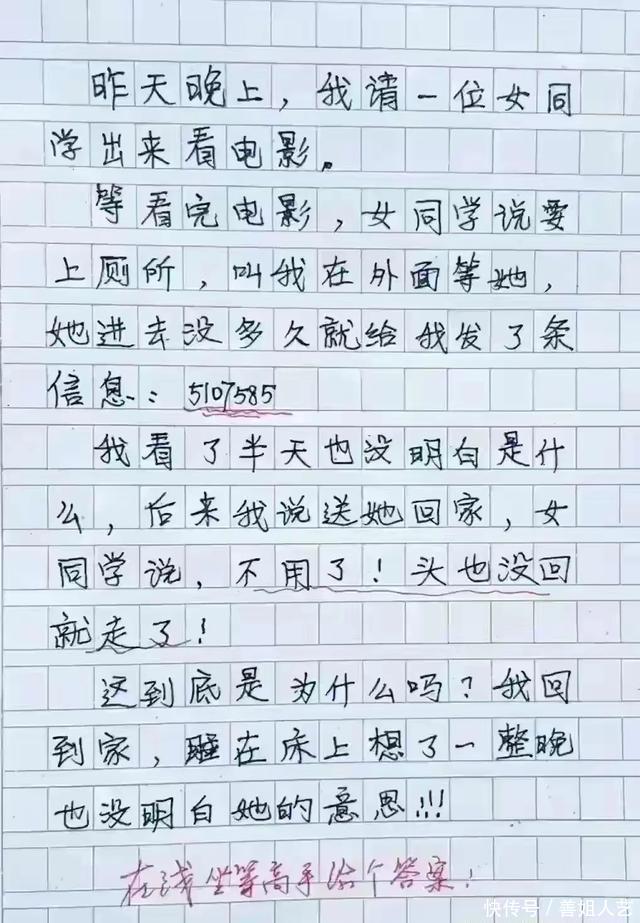 昨天晚上，我请一位女同
学出来看电影。
等看完电影，女同学说要
上厕所，叫我在外面等她，
她进去没多久就给我发了条
信息：5107585
我看了半天也没明白是什
么，后来我说送她回家，女
同学说，不用了！头也没回
就走了！
这到底是为什么吗？我回
到家，睡在床上想了一整晚
也没明白她的意思!!!
在线坐等高手给个答案！
快传号／善姐人艺